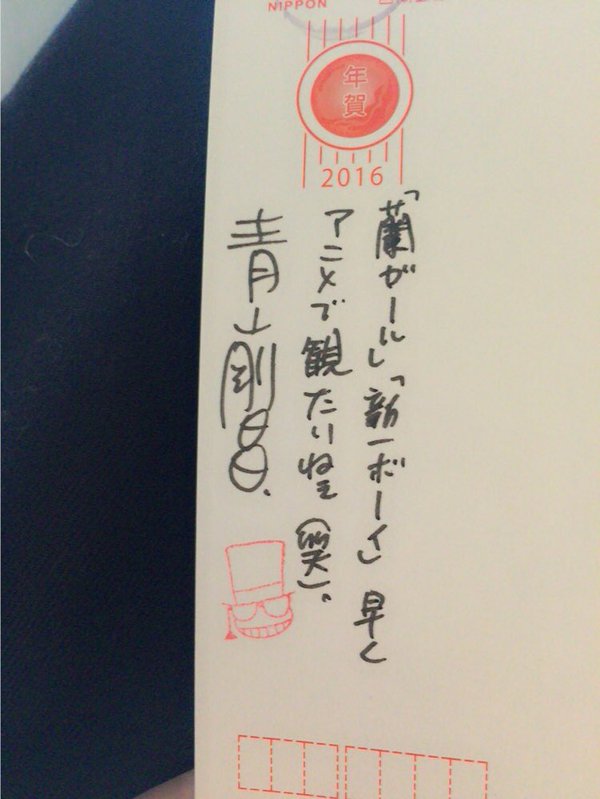 NIPPON
年賀
2016
「蘭ガール」「新一ボーイ」早く
アニメで観たいねェ(笑)。
青山剛昌.